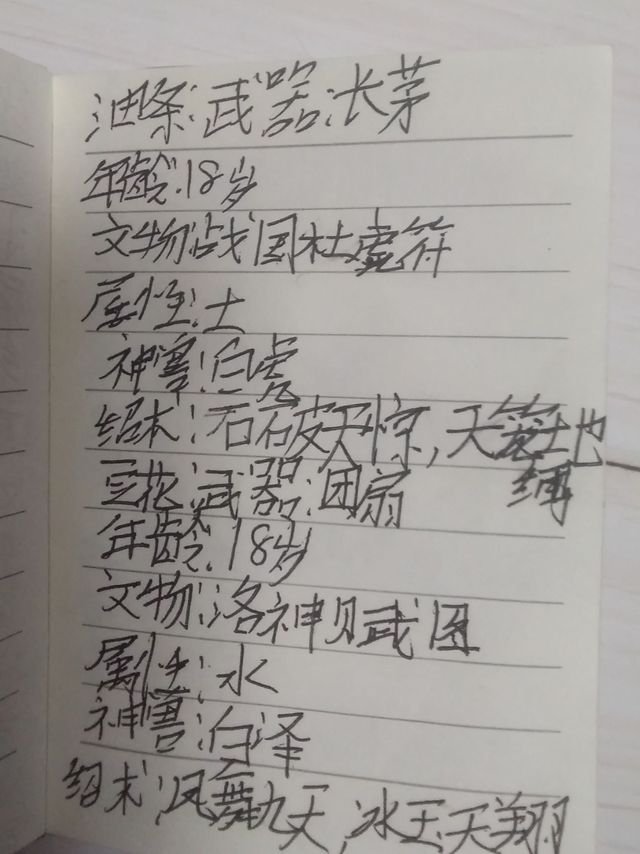 油条:武器:长茅
年龄.18岁
文物战国杜虎符
属性:土
神兽:白虎
绍术:石破天惊,天笼地
绳
豆花:武器:团扇
年龄.18岁
文物:洛神赋图
属性:水
神兽:白泽
绍术:凤舞九天,冰玉天翔